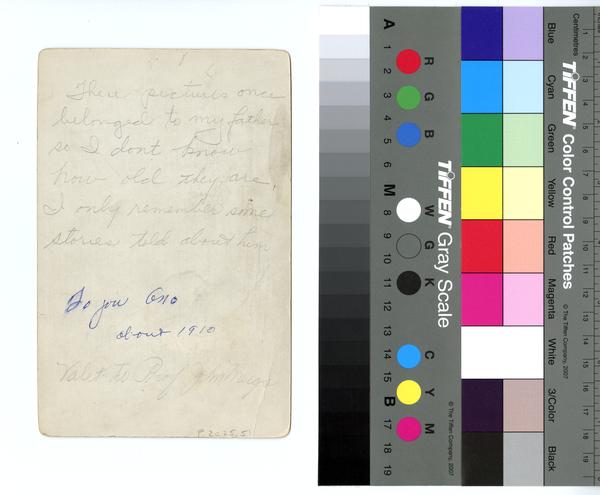 These pictures once
belonged to my father
so I dont know
how old they are.
I only remember some
stories told about him
about 1910
Valet to Prof
A 1 2 3 4 5 6 M 8 9 10 11 12 13 14 15 B 17 18 19
R G B
W G K
C Y M
TIFFEN Gray Scale
© The Tiffen Company, 2007
Blue
Cyan
Green
Yellow
Red
Magenta
White
3/Color
Black
TIFFEN Color Control Patches
© The Tiffen Company, 2007
Centimetres
1 2 3 4 5 6 7 8 9 10 11 12 13 14 15 16 17 18 19